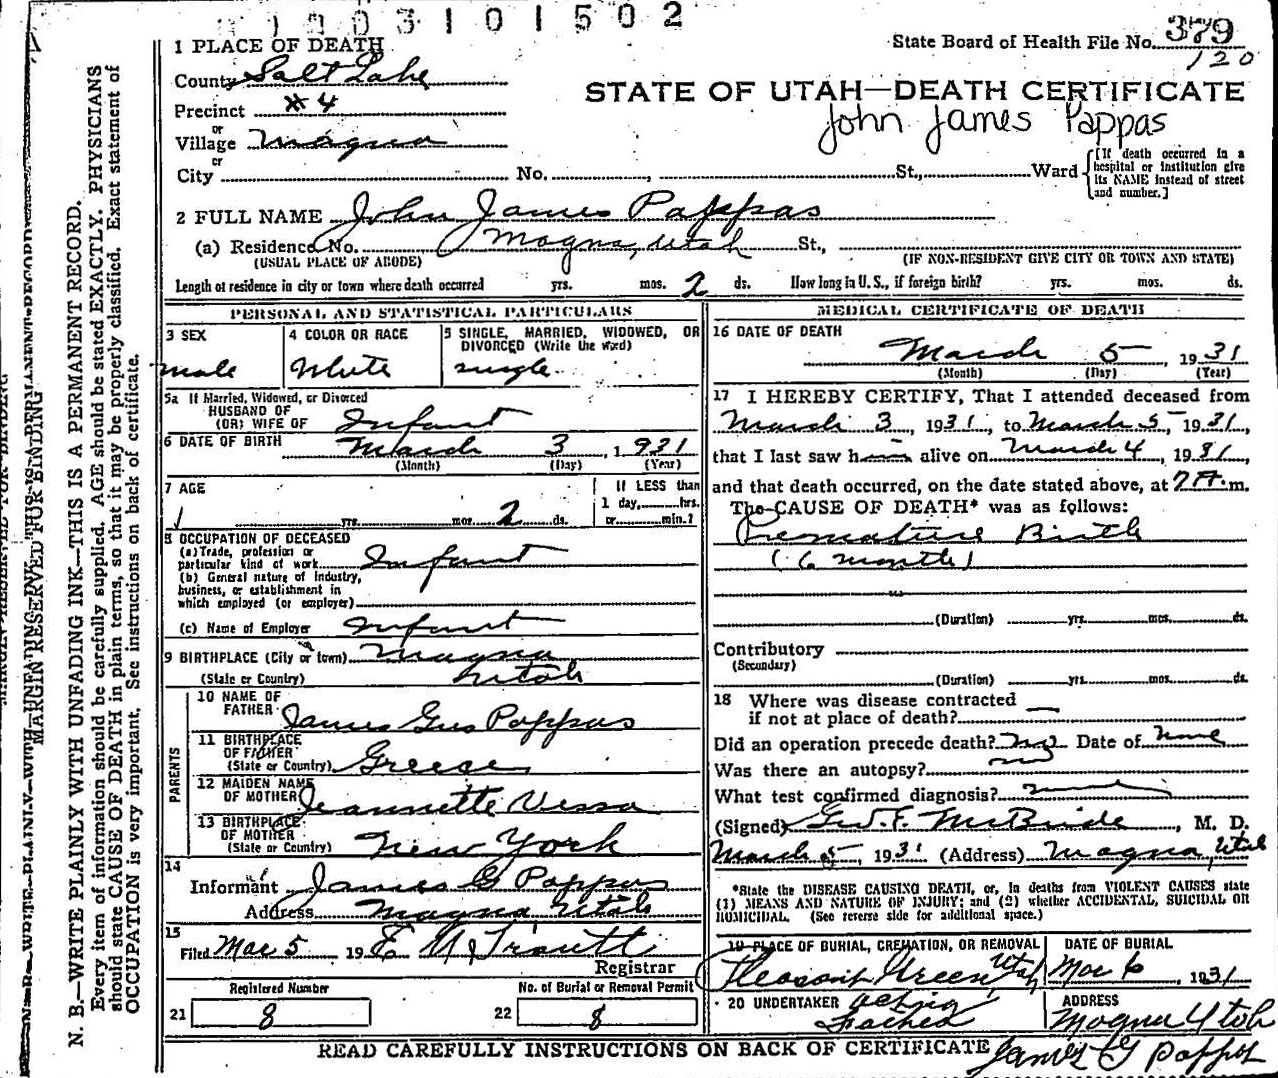 1003101502
State Board of Health File No. 379
120
1 PLACE OF DEATH
County Salt Lake
Precinct #4
or
Village Magna
or
City No. , St., Ward
[If death occurred in a hospital or institution give its NAME instead of street and number.]
STATE OF UTAH—DEATH CERTIFICATE
John James Pappas
2 FULL NAME John James Pappas
(a) Residence No. Magna, Utah St.,
(USUAL PLACE OF ABODE) (IF NON-RESIDENT GIVE CITY OR TOWN AND STATE)
Length of residence in city or town where death occurred yrs. mos. 2 ds. How long in U. S., if foreign birth? yrs. mos. ds.
PERSONAL AND STATISTICAL PARTICULARS
3 SEX
male
4 COLOR OR RACE
White
5 SINGLE, MARRIED, WIDOWED, OR DIVORCED (Write the word)
single
5a If Married, Widowed, or Divorced
HUSBAND OF
(OR) WIFE OF Infant
6 DATE OF BIRTH March 3, 1931
(Month) (Day) (Year)
7 AGE
yrs. mos. 2 ds.
If LESS than
1 day, hrs.
or min.?
8 OCCUPATION OF DECEASED
(a) Trade, profession or
particular kind of work Infant
(b) General nature of industry,
business, or establishment in
which employed (or employer)
(c) Name of Employer Infant
9 BIRTHPLACE (City or town) Magna
(State or Country) Utah
PARENTS
10 NAME OF
FATHER James Gus Pappas
11 BIRTHPLACE
OF FATHER
(State or Country) Greece
12 MAIDEN NAME
OF MOTHER Jeannette Vessa
13 BIRTHPLACE
OF MOTHER
(State or Country) New York
14
Informant James G Pappas
Address Magna Utah
15
Filed Mar 5 19 E N Trautt
Registrar
Registered Number
21 8
No. of Burial or Removal Permit
22 8
MEDICAL CERTIFICATE OF DEATH
16 DATE OF DEATH
March 5, 1931
(Month) (Day) (Year)
17 I HEREBY CERTIFY, That I attended deceased from
March 3, 1931, to March 5, 1931,
that I last saw him alive on March 4, 1931,
and that death occurred, on the date stated above, at 7 A.m.
The CAUSE OF DEATH* was as follows:
Premature Birth
(6 months)
(Duration) yrs. mos. ds.
Contributory
(Secondary)
(Duration) yrs. mos. ds.
18 Where was disease contracted
if not at place of death? —
Did an operation precede death? no Date of none
Was there an autopsy? no
What test confirmed diagnosis?
(Signed) Geo. F. McBride, M. D.
March 5, 1931 (Address) Magna, Utah
*State the DISEASE CAUSING DEATH, or, in deaths from VIOLENT CAUSES state
(1) MEANS AND NATURE OF INJURY; and (2) whether ACCIDENTAL, SUICIDAL OR
HOMICIDAL. (See reverse side for additional space.)
19 PLACE OF BURIAL, CREMATION, OR REMOVAL
Pleasant Green, Utah
DATE OF BURIAL
Mar 6 1931
20 UNDERTAKER acting
Father
ADDRESS
Magna Utah
READ CAREFULLY INSTRUCTIONS ON BACK OF CERTIFICATE
James G Pappas
MARGIN RESERVED FOR BINDING
N. B.—WRITE PLAINLY WITH UNFADING INK—THIS IS A PERMANENT RECORD.
Every item of information should be carefully supplied. AGE should be stated EXACTLY. PHYSICIANS
should state CAUSE OF DEATH in plain terms, so that it may be properly classified. Exact statement of
OCCUPATION is very important. See instructions on back of certificate.